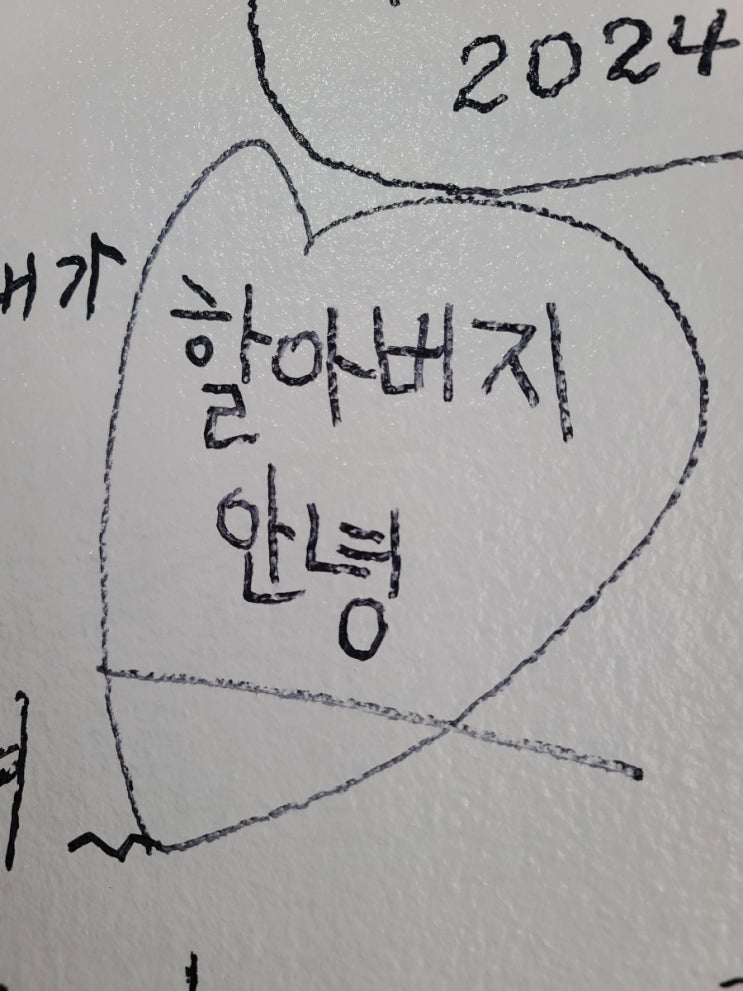 2024
가
할아버지
안녕